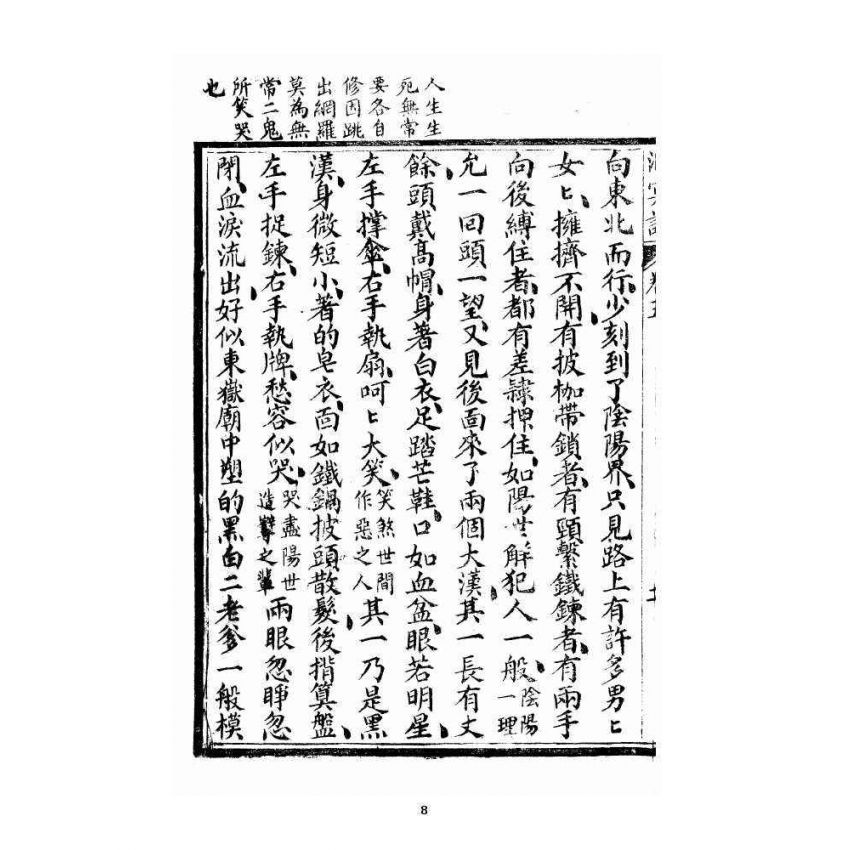 人生生
死無常
要各自
修因跳
出網羅
莫為無
常二鬼
所笑哭
也
向東北而行、少刻到了陰陽界、只見路上有許多男匕
女匕、擁擠不開有披枷帶鎖者、有頸繫鐵鍊者、有兩手
向後縛住者、都有差隸押住、如陽世解犯人一般、陰陽一理
允一回頭一望、又見後面來了兩個大漢、其一長有丈
餘頭戴髙帽、身著白衣、足踏芒鞋、口如血盆、眼若明星、
左手撑傘、右手執扇、呵匕大笑、笑煞世間作惡之人其一乃是黑
漢、身微短小、著的皂衣、面如鐵鍋披頭散髮、後揹算盤、
左手捉鍊、右手執牌、愁容似哭、哭盡陽世造孽之輩兩眼忽睜忽
閉、血淚流出、好似東嶽廟中塑的黑白二老爹一般模
8